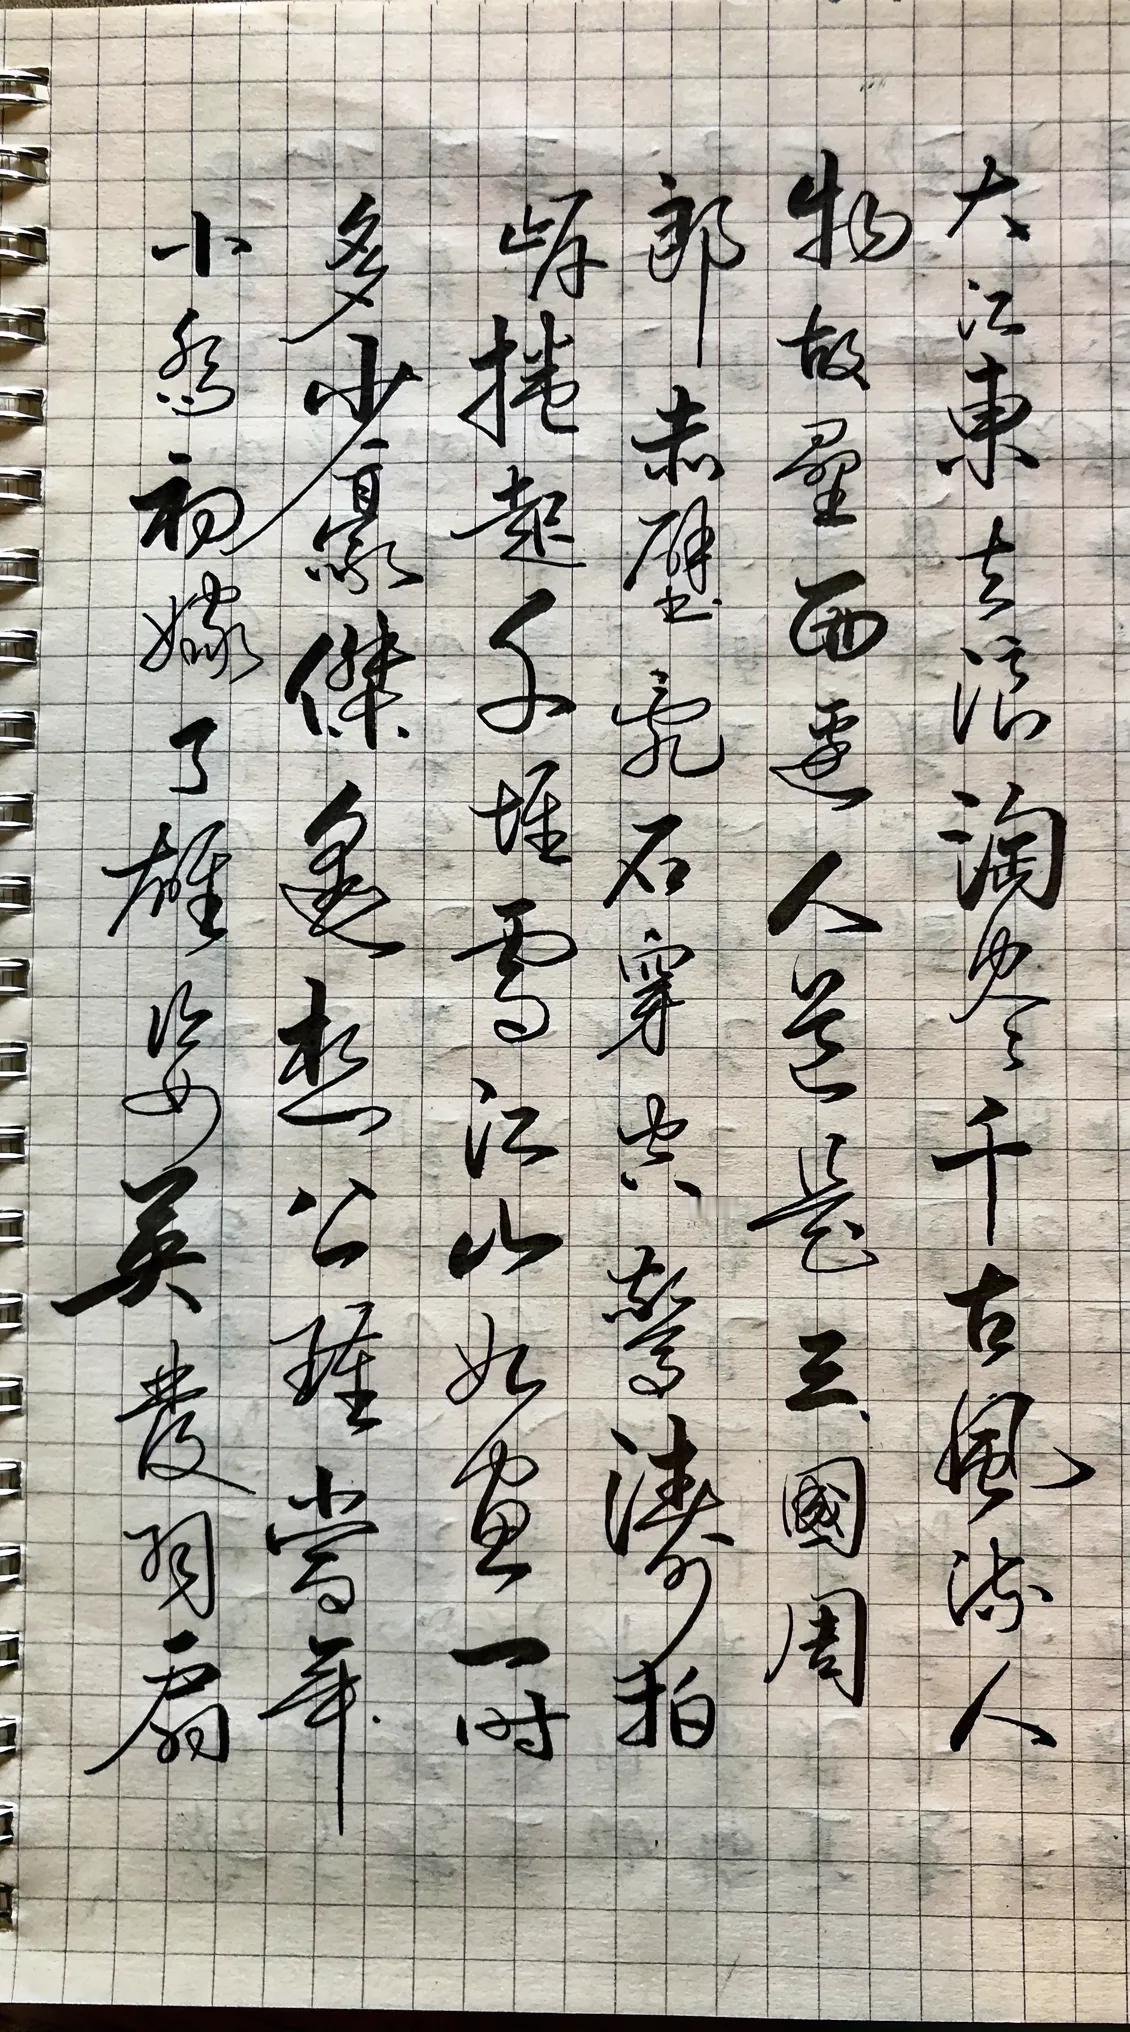 大江東去浪淘尽千古風流人
物故壘西邊人道是三國周
郎赤壁亂石穿空驚濤拍
岸捲起千堆雪江山如畫一时
多少豪傑遙想公瑾當年
小喬初嫁了雄姿英發羽扇